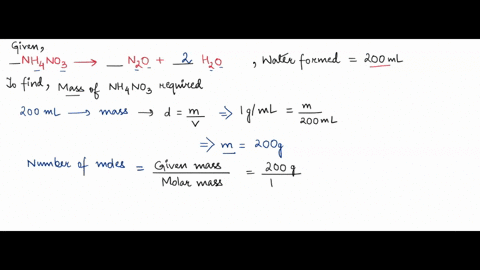 Given,
_NH4NO3 → _ N2O + 2 H2O , Water formed = 200 mL
To find, Mass of NH4NO3 required
200 mL → mass → d = m/V ⇒ 1 g/mL = m/200 mL
⇒ m = 200g
Number of moles = Given mass/Molar mass = 200 g/1